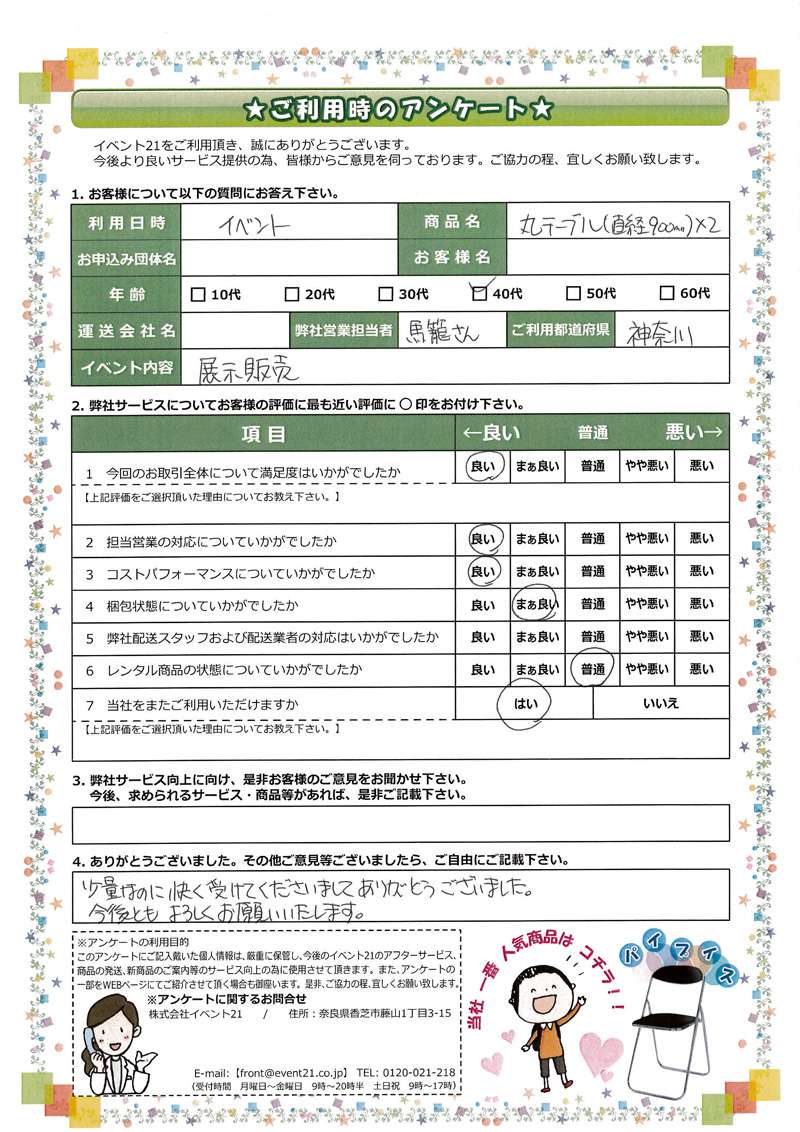 ★ご利用時のアンケート★
イベント21をご利用頂き、誠にありがとうございます。
今後より良いサービス提供の為、皆様からご意見を伺っております。ご協力の程、宜しくお願い致します。
1. お客様について以下の質問にお答え下さい。
利用日時 イベント 商品名 丸テーブル(直経900mm)×2
お申込み団体名 お客様名
年齢 □10代 □20代 □30代 ☑40代 □50代 □60代
運送会社名 弊社営業担当者 馬籠さん ご利用都道府県 神奈川
イベント内容 展示販売
2. 弊社サービスについてお客様の評価に最も近い評価に ○ 印をお付け下さい。
項目 ←良い 普通 悪い→
1 今回のお取引全体について満足度はいかがでしたか 良い まぁ良い 普通 やや悪い 悪い
【上記評価をご選択頂いた理由についてお教え下さい。】
2 担当営業の対応についていかがでしたか 良い まぁ良い 普通 やや悪い 悪い
3 コストパフォーマンスについていかがでしたか 良い まぁ良い 普通 やや悪い 悪い
4 梱包状態についていかがでしたか 良い まぁ良い 普通 やや悪い 悪い
5 弊社配送スタッフおよび配送業者の対応はいかがでしたか 良い まぁ良い 普通 やや悪い 悪い
6 レンタル商品の状態についていかがでしたか 良い まぁ良い 普通 やや悪い 悪い
7 当社をまたご利用いただけますか はい いいえ
【上記評価をご選択頂いた理由についてお教え下さい。】
3. 弊社サービス向上に向け、是非お客様のご意見をお聞かせ下さい。
今後、求められるサービス・商品等があれば、是非ご記載下さい。
4. ありがとうございました。その他ご意見等ございましたら、ご自由にご記載下さい。
少量なのに快く受けてくださいましてありがとうございました。
今後とも よろしくお願いいたします。
※アンケートの利用目的
このアンケートにご記入戴いた個人情報は、厳重に保管し、今後のイベント21のアフターサービス、
商品の発送、新商品のご案内等のサービス向上の為に使用させて頂きます。また、アンケートの
一部をWEBページにてご紹介させて頂く場合も御座います。是非、ご協力の程、宜しくお願い致します。
※アンケートに関するお問合せ
株式会社イベント21 / 住所：奈良県香芝市藤山1丁目3-15
E-mail：【front@event21.co.jp】 TEL：0120-021-218
（受付時間 月曜日～金曜日 9時～20時半 土日祝 9時～17時）
当社一番人気商品はコチラ！！
パイプイス